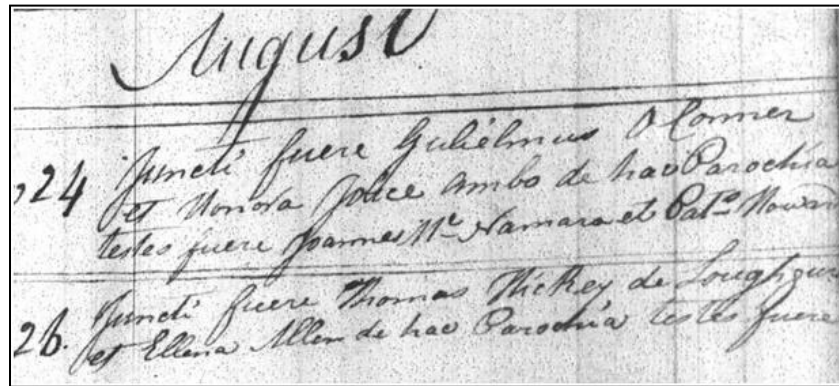 August
24 Juncti fuere Guliélmus O Conner
et Honora Joice ambo de hac Parochia
testes fuere Joannes Mc Namara et Pat.
26. Juncti fuere Thomas Hickey de Loughgur
et Ellena Allen de hac Parochia testes fuere